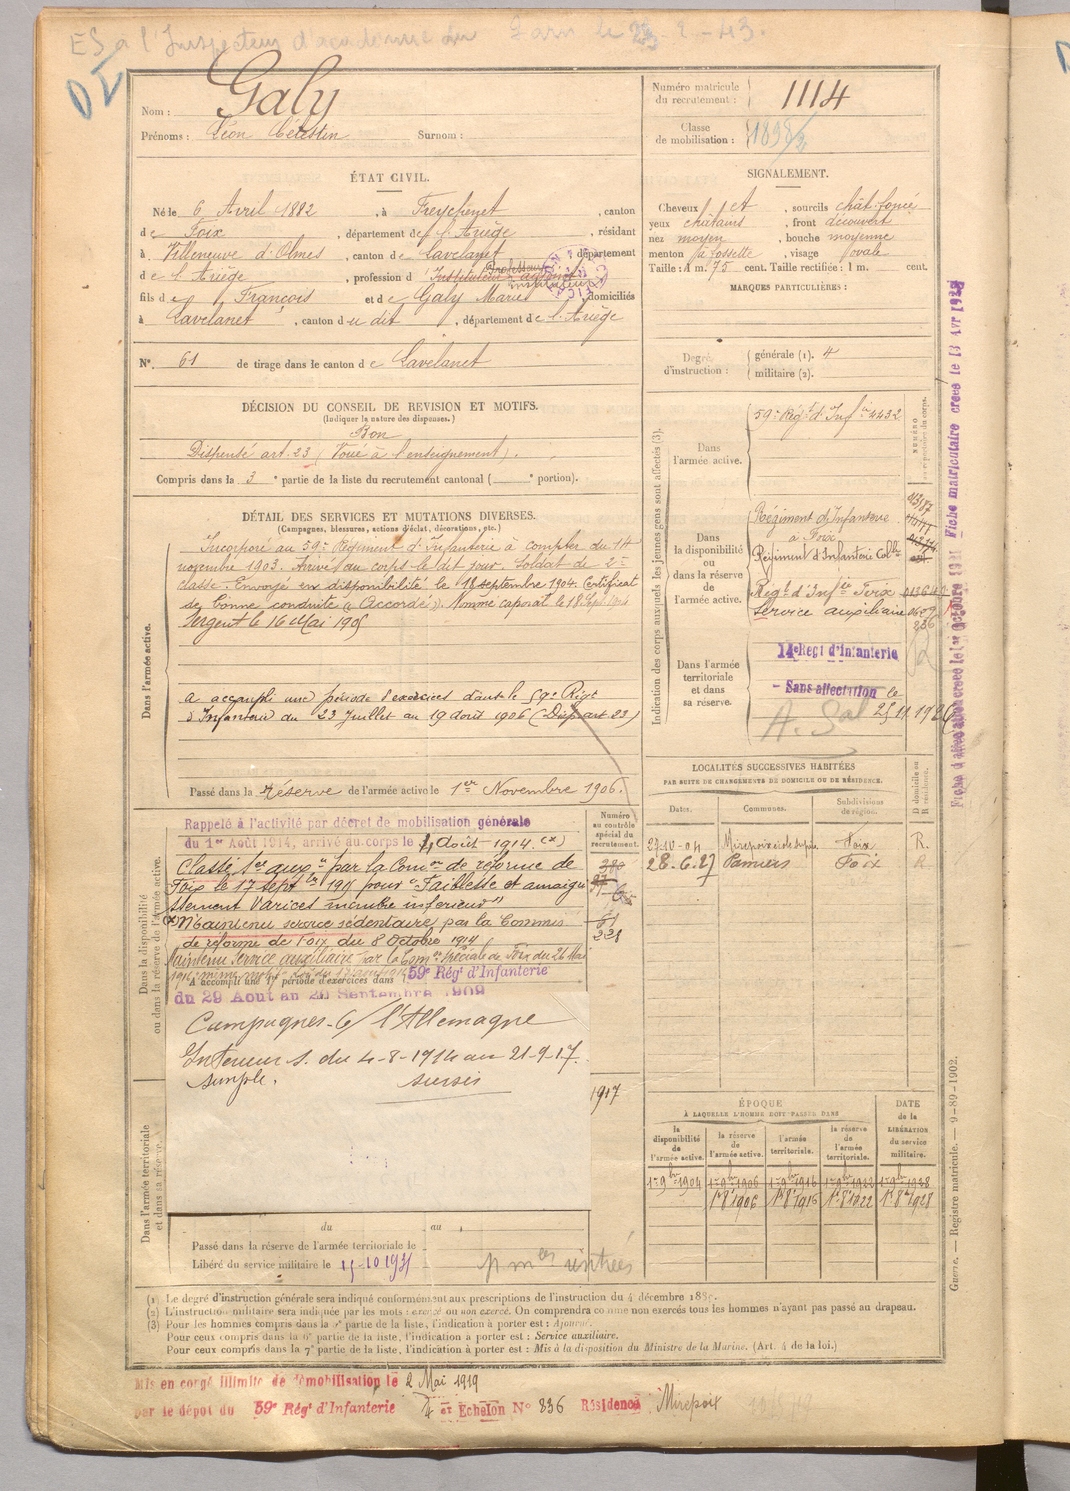 ES a l'Inspecteur d'académie du Tarn le 23-2-43.
Nom : Galy
Prénoms : Léon Célestin Surnom :
Numéro matricule du recrutement : 1114
Classe de mobilisation : 1898/2
ÉTAT CIVIL.
Né le 6 Avril 1882, à Freychenet, canton
de Foix, département de l'Ariège, résidant
à Villeneuve d'Olmes, canton de Lavelanet, département
de l'Ariège, profession d'Instituteur Professeur
fils de François et de Galy Marie domiciliés
à Lavelanet, canton du dit, département de l'Ariège
N° 61 de tirage dans le canton de Lavelanet
SIGNALEMENT.
Cheveux et, sourcils chât. foncé
yeux châtains, front découvert
nez moyen, bouche moyenne
menton à fossette, visage ovale
Taille : 1 m. 75 cent. Taille rectifiée : 1 m. cent.
MARQUES PARTICULIÈRES :
Degré d'instruction : générale (1). 4
militaire (2).
DÉCISION DU CONSEIL DE REVISION ET MOTIFS.
(Indiquer la nature des dispenses.)
Bon
Dispensé art. 23 (Voué à l'enseignement).
Compris dans la 3e partie de la liste du recrutement cantonal ( e portion).
DÉTAIL DES SERVICES ET MUTATIONS DIVERSES.
(Campagnes, blessures, actions d'éclat, décorations, etc.)
Dans l'armée active.
Incorporé au 59e Régiment d'Infanterie à compter du 14
novembre 1903. Arrivé au corps le dit jour. Soldat de 2e
classe. Envoyé en disponibilité le 18 septembre 1904. Certificat
de bonne conduite "Accordé". Nommé caporal le 18 Sept. 1904
Sergent le 16 Mai 1905
a accompli une période d'exercices dans le 59e Régt
d'Infanterie du 23 Juillet au 19 août 1906 (Disp. art 23)
Passé dans la réserve de l'armée active le 1er Novembre 1906.
Indication des corps auxquels les jeunes gens sont affectés (3).
NUMÉRO
Dans l'armée active.
59e Régt d'Infie 4432
Dans la disponibilité ou dans la réserve de l'armée active.
Régiment d'Infanterie
à Foix
Régiment d'Infanterie
Régt d'Infie Foix
Service auxiliaire
836
Dans l'armée territoriale et dans sa réserve.
14e Regt d'Infanterie
- Sans affectation le
25 11 1926
Fiche matriculaire créée le 13 Avr 1928
LOCALITÉS SUCCESSIVES HABITÉES
PAR SUITE DE CHANGEMENTS DE DOMICILE OU DE RÉSIDENCE.
Dates. Communes. Subdivisions de région. D domicile ou R résidence.
Foix R.
28.6.27 Pamiers Foix R
Dans la disponibilité ou dans la réserve de l'armée active.
Numéro au contrôle spécial du recrutement.
Rappelé à l'activité par décret de mobilisation générale
du 1er Août 1914, arrivé au corps le 4 Août 1914 (x)
Classé sce auxre par la Comon de réforme de
Foix le 17 septbre 1911 pour "Faiblesse et amaigrissement
Varices membre inférieur"
(x) Maintenu service sédentaire par la Commis
de réforme de Foix du 8 Octobre 1914
Maintenu Service auxiliaire par la Comon spéciale de Foix du 26 Mai
A accompli une 1re période d'exercices dans 59e Régt d'Infanterie
du 29 Aout au 20 Septembre 1909
Campagnes C/ l'Allemagne
Intérieur S. du 4-8-1914 au 21-9-17.
simple. sursis
1917
ÉPOQUE
À LAQUELLE L'HOMME DOIT PASSER DANS
la disponibilité de l'armée active. la réserve de l'armée active. l'armée territoriale. la réserve de l'armée territoriale. DATE de la LIBÉRATION du service militaire.
1er 9bre 1904 1er 9bre 1906 1er 9bre 1916 1er 9bre 1922 1er 9bre 1928
1er 8e 1906 1er 8e 1916 1er 8e 1922 1er 8e 1928
Dans l'armée territoriale et dans sa réserve.
du au
Passé dans la réserve de l'armée territoriale le
Libéré du service militaire le 15-10 1931
(1) Le degré d'instruction générale sera indiqué conformément aux prescriptions de l'instruction du 4 décembre 1889.
(2) L'instruction militaire sera indiquée par les mots : exercé ou non exercé. On comprendra comme non exercés tous les hommes n'ayant pas passé au drapeau.
(3) Pour les hommes compris dans la 5e partie de la liste, l'indication à porter est : Ajourné.
Pour ceux compris dans la 6e partie de la liste, l'indication à porter est : Service auxiliaire.
Pour ceux compris dans la 7e partie de la liste, l'indication à porter est : Mis à la disposition du Ministre de la Marine. (Art. 4 de la loi.)
Guerre. — Registre matricule. — 9-89-1902.
Mis en congé illimité de démobilisation le 2 Mai 1919
par le dépôt du 59e Régt d'Infanterie 4e Echelon N° 836 Résidence Mirepoix